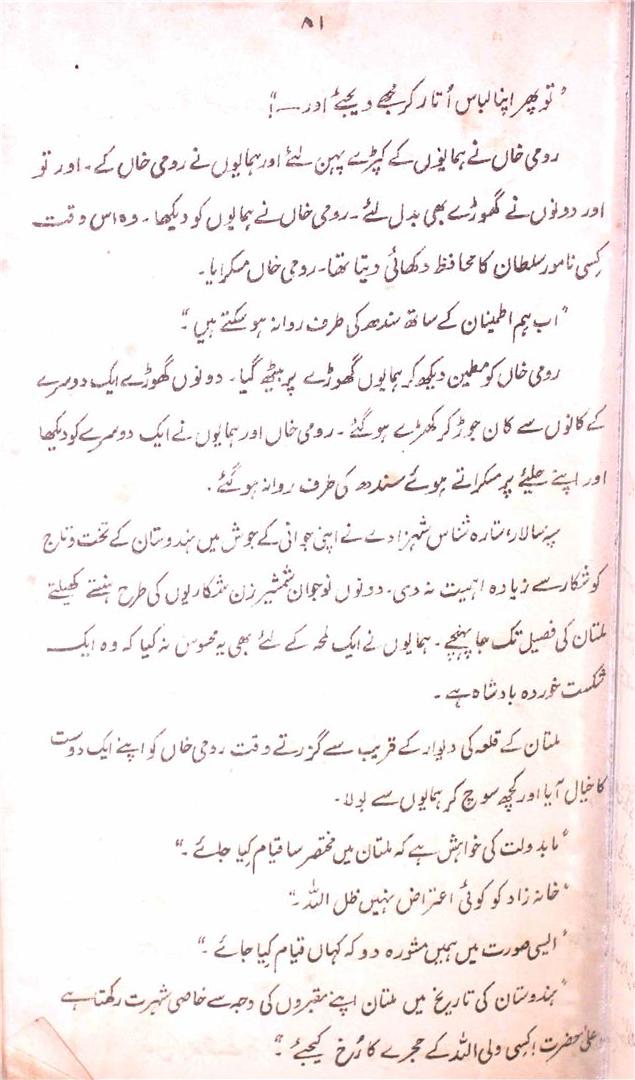 ۸۱
"تو پھر اپنا لباس اُتار کر مجھے دیجیئے اور ــــ!"
رومی خاں نے ہمایوں کے کپڑے پہن لئے اور ہمایوں نے رومی خاں کے۔ اور تو
اور دونوں نے گھوڑے بھی بدل لئے۔ رومی خاں نے ہمایوں کو دیکھا۔ وہ اس وقت
کسی نامور سلطان کا محافظ دکھائی دیتا تھا۔ رومی خاں مسکرایا۔
"اب ہم اطمینان کے ساتھ سندھ کی طرف روانہ ہو سکتے ہیں"۔
رومی خاں کو مطمین دیکھ کر ہمایوں گھوڑے پر بیٹھ گیا۔ دونوں گھوڑے ایک دوسرے
کے کانوں سے کان جوڑ کر کھڑے ہو گئے۔ رومی خاں اور ہمایوں نے ایک دوسرے کو دیکھا
اور اپنے حلیئے پر مسکراتے ہوئے سندھ کی طرف روانہ ہو گئے۔
سپہ سالار ستارہ شناس شہزادے نے اپنی جوانی کے جوش میں ہندوستان کے تخت و تاج
کو شکار سے زیادہ اہمیت نہ دی۔ دونوں نوجوان شمشیر زن شکاریوں کی طرح ہنستے کھیلتے
ملتان کی فصیل تک جا پہنچے۔ ہمایوں نے ایک لمحہ کے لئے بھی یہ محسوس نہ کیا کہ وہ ایک
شکست خوردہ بادشاہ ہے۔
ملتان کے قلعہ کی دیوار کے قریب سے گزرتے وقت رومی خاں کو اپنے ایک دوست
کا خیال آیا اور کچھ سوچ کر ہمایوں سے بولا۔
"مابدولت کی خواہش ہے کہ ملتان میں مختصر سا قیام کیا جائے۔"
"خانہ زاد کو کوئی اعتراض نہیں ظل اللہ۔"
"ایسی صورت میں ہمیں مشورہ دو کہ کہاں قیام کیا جائے۔"
"ہندوستان کی تاریخ میں ملتان اپنے مقبروں کی وجہ سے خاصی شہرت رکھتا ہے
اعلیٰ حضرت! کسی ولی اللہ کے حجرے کا رُخ کیجئے۔"